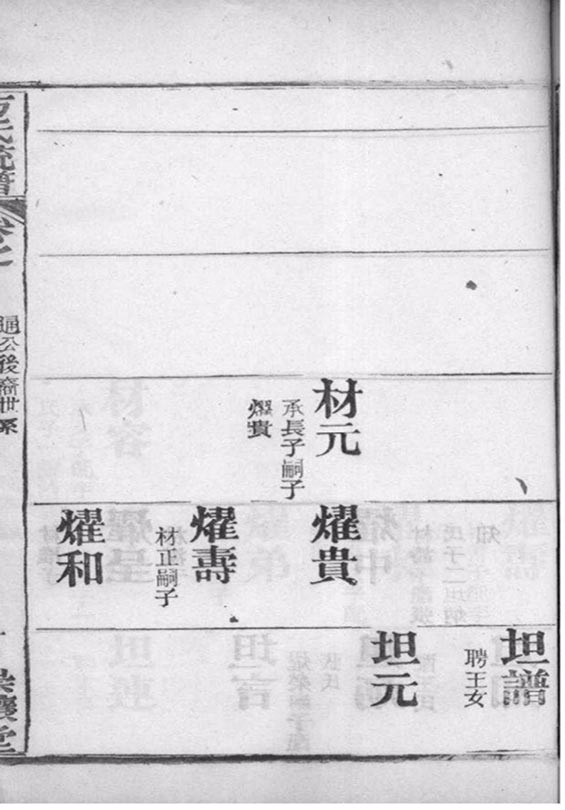 材元
承長子嗣子
燿貴
燿貴
燿壽
材正嗣子
燿和
坦譜
聘王女
坦元
氏統譜
卷之
公後裔世系